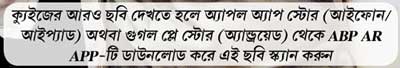 ক্যুইজের আরও ছবি দেখতে হলে অ্যাপল অ্যাপ স্টোর (আইফোন/
আইপ্যাড) অথবা গুগল প্লে স্টোর (অ্যান্ড্রয়েড) থেকে ABP AR
APP-টি ডাউনলোড করে এই ছবি স্ক্যান করুন